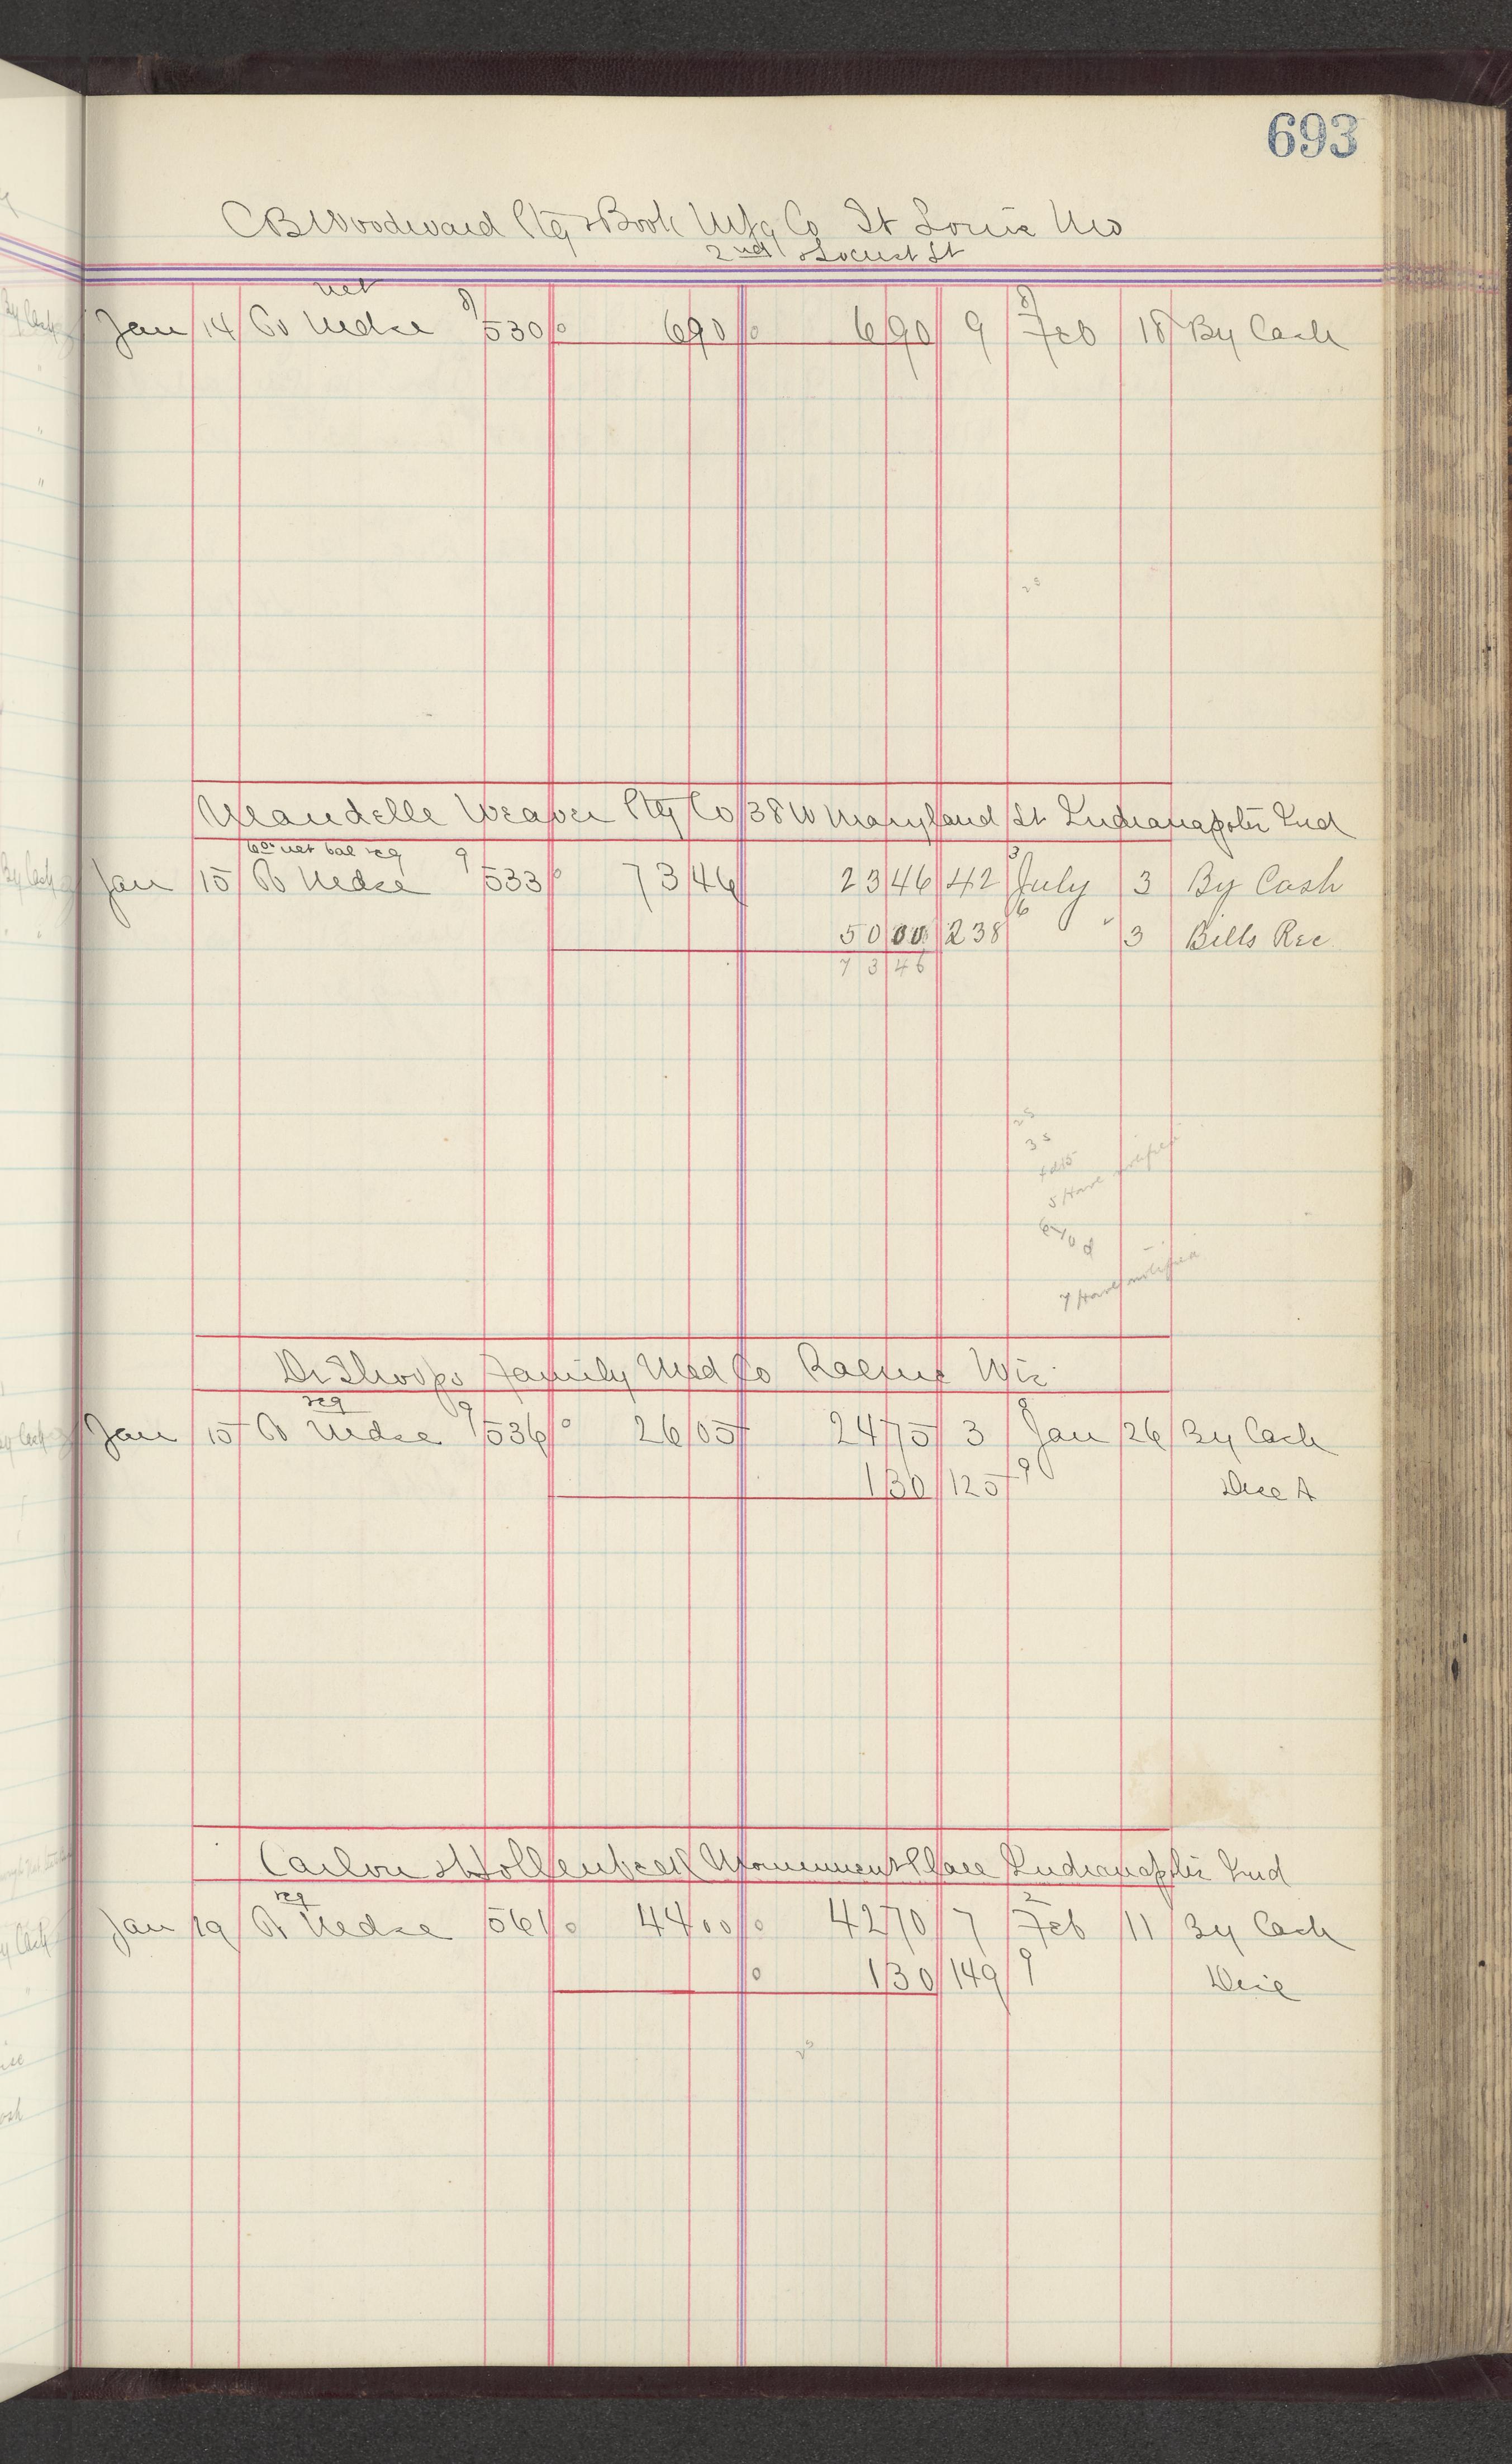 693
CB Woodward Ptg & Book Mfg Co St Louis Mo
2nd & Locust St
net
Jan 14 To Mdse 8 530 6 90 6 90 9 8 Feb 18 By Cash
Mandelle Weaver Ptg Co 38 W Maryland St Indianapolis Ind
60 net bal reg
Jan 15 To Mdse 9 533 73 46 23 46 42 3 July 3 By Cash
50 00 238 6 " 3 Bills Rec
73 46
2s
3s
5 Have notified
7 Have notified
Dr Shoops Family Med Co Racine Wis
reg
Jan 15 To Mdse 9 536 26 05 24 75 3 8 Jan 26 By Cash
1 30 125 9 Disc A
Carlon & Hollenbeck Monument Place Indianapolis Ind
reg
Jan 19 To Mdse 561 44 00 42 70 7 2 Feb 11 By Cash
1 30 149 9 Disc